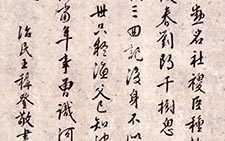 名社稷臣種
度春劉郎千樹
三回記後身不似
世只疑漁父已知
當年事曾識河
治民王穉登敬書